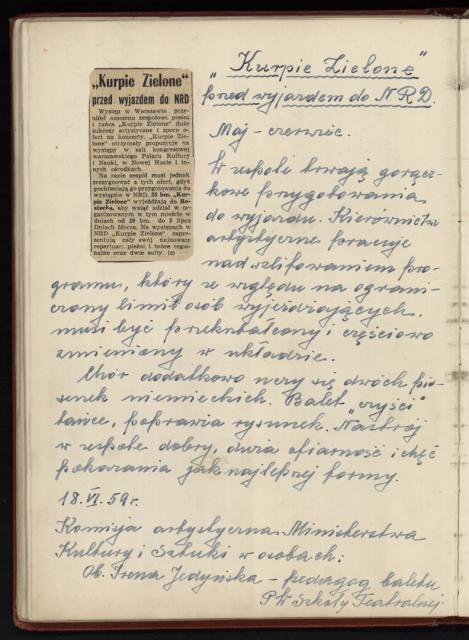 „Kurpie Zielone"
przed wyjazdem do NRD
Występ w Warszawie przy-
niósł naszemu zespołowi pieśni
i tańca „Kurpie Zielone" duże
sukcesy artystyczne i sporo o-
fert na koncerty. „Kurpie Zie-
lone" otrzymały propozycje na
występy w sali kongresowej
warszawskiego Pałacu Kultury
i Nauki, w Nowej Hucie i in-
nych ośrodkach.
Na razie zespół musi jednak
zrezygnować z tych ofert, gdyż
pochłaniają go przygotowania do
występów w NRD. 25 bm. „Kur-
pie Zielone" wyjeżdżają do Ro-
stocka, aby wziąć udział w or-
ganizowanym w tym mieście w
dniach od 26 bm. do 5 lipca
Dniach Morza. Na występach w
NRD „Kurpie Zielone" zapre-
zentują cały swój najnowszy
repertuar: pieśni i tańce regio-
nalne oraz dwie suity. (s)
„Kurpie Zielone"
przed wyjazdem do NRD.
Maj - czerwiec.
W zespole trwają gorącz-
kowe przygotowania
do wyjazdu. Kierownictwo
artystyczne pracuje
nad szlifowaniem pro-
gramu, który ze względu na ograni-
czony limit osób wyjeżdżających,
musi być przekształcony i częściowo
zmieniony w układzie.
Chór dodatkowo uczy się dwóch pio-
senek niemieckich. Balet „czyści"
tańce, poprawia rysunek. Nastrój
w zespole dobry, duża ofiarność i chęć
pokazania jak najlepszej formy.
18.VI.59 r.
Komisja artystyczna Ministerstwa
Kultury i Sztuki w osobach:
Ob. Irena Jedyńska - pedagog baletu
PW Szkoły Teatralnej